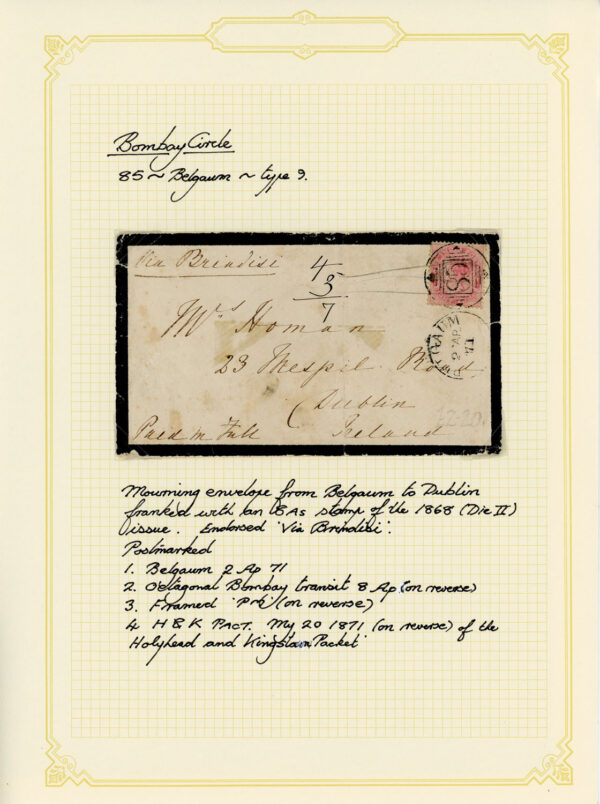 Bombay Circle
85 ~ Belgaum ~ type 9.
Via Brindisi
4
3
7
85
Mrs Homan
23 Mespil Road
Dublin
Paid in Full
Ireland
BELGAUM
2 AP
71
Mourning envelope from Belgaum to Dublin
franked with an 8As stamp of the 1868 (Die II)
issue. Endorsed 'Via Brindisi'.
Postmarked
1. Belgaum 2 Ap 71
2. Octagonal Bombay transit 8 Ap (on reverse)
3. Framed (on reverse)
4 H & K PACT. My 20 1871 (on reverse) of the
Holyhead and Kingstown Packet